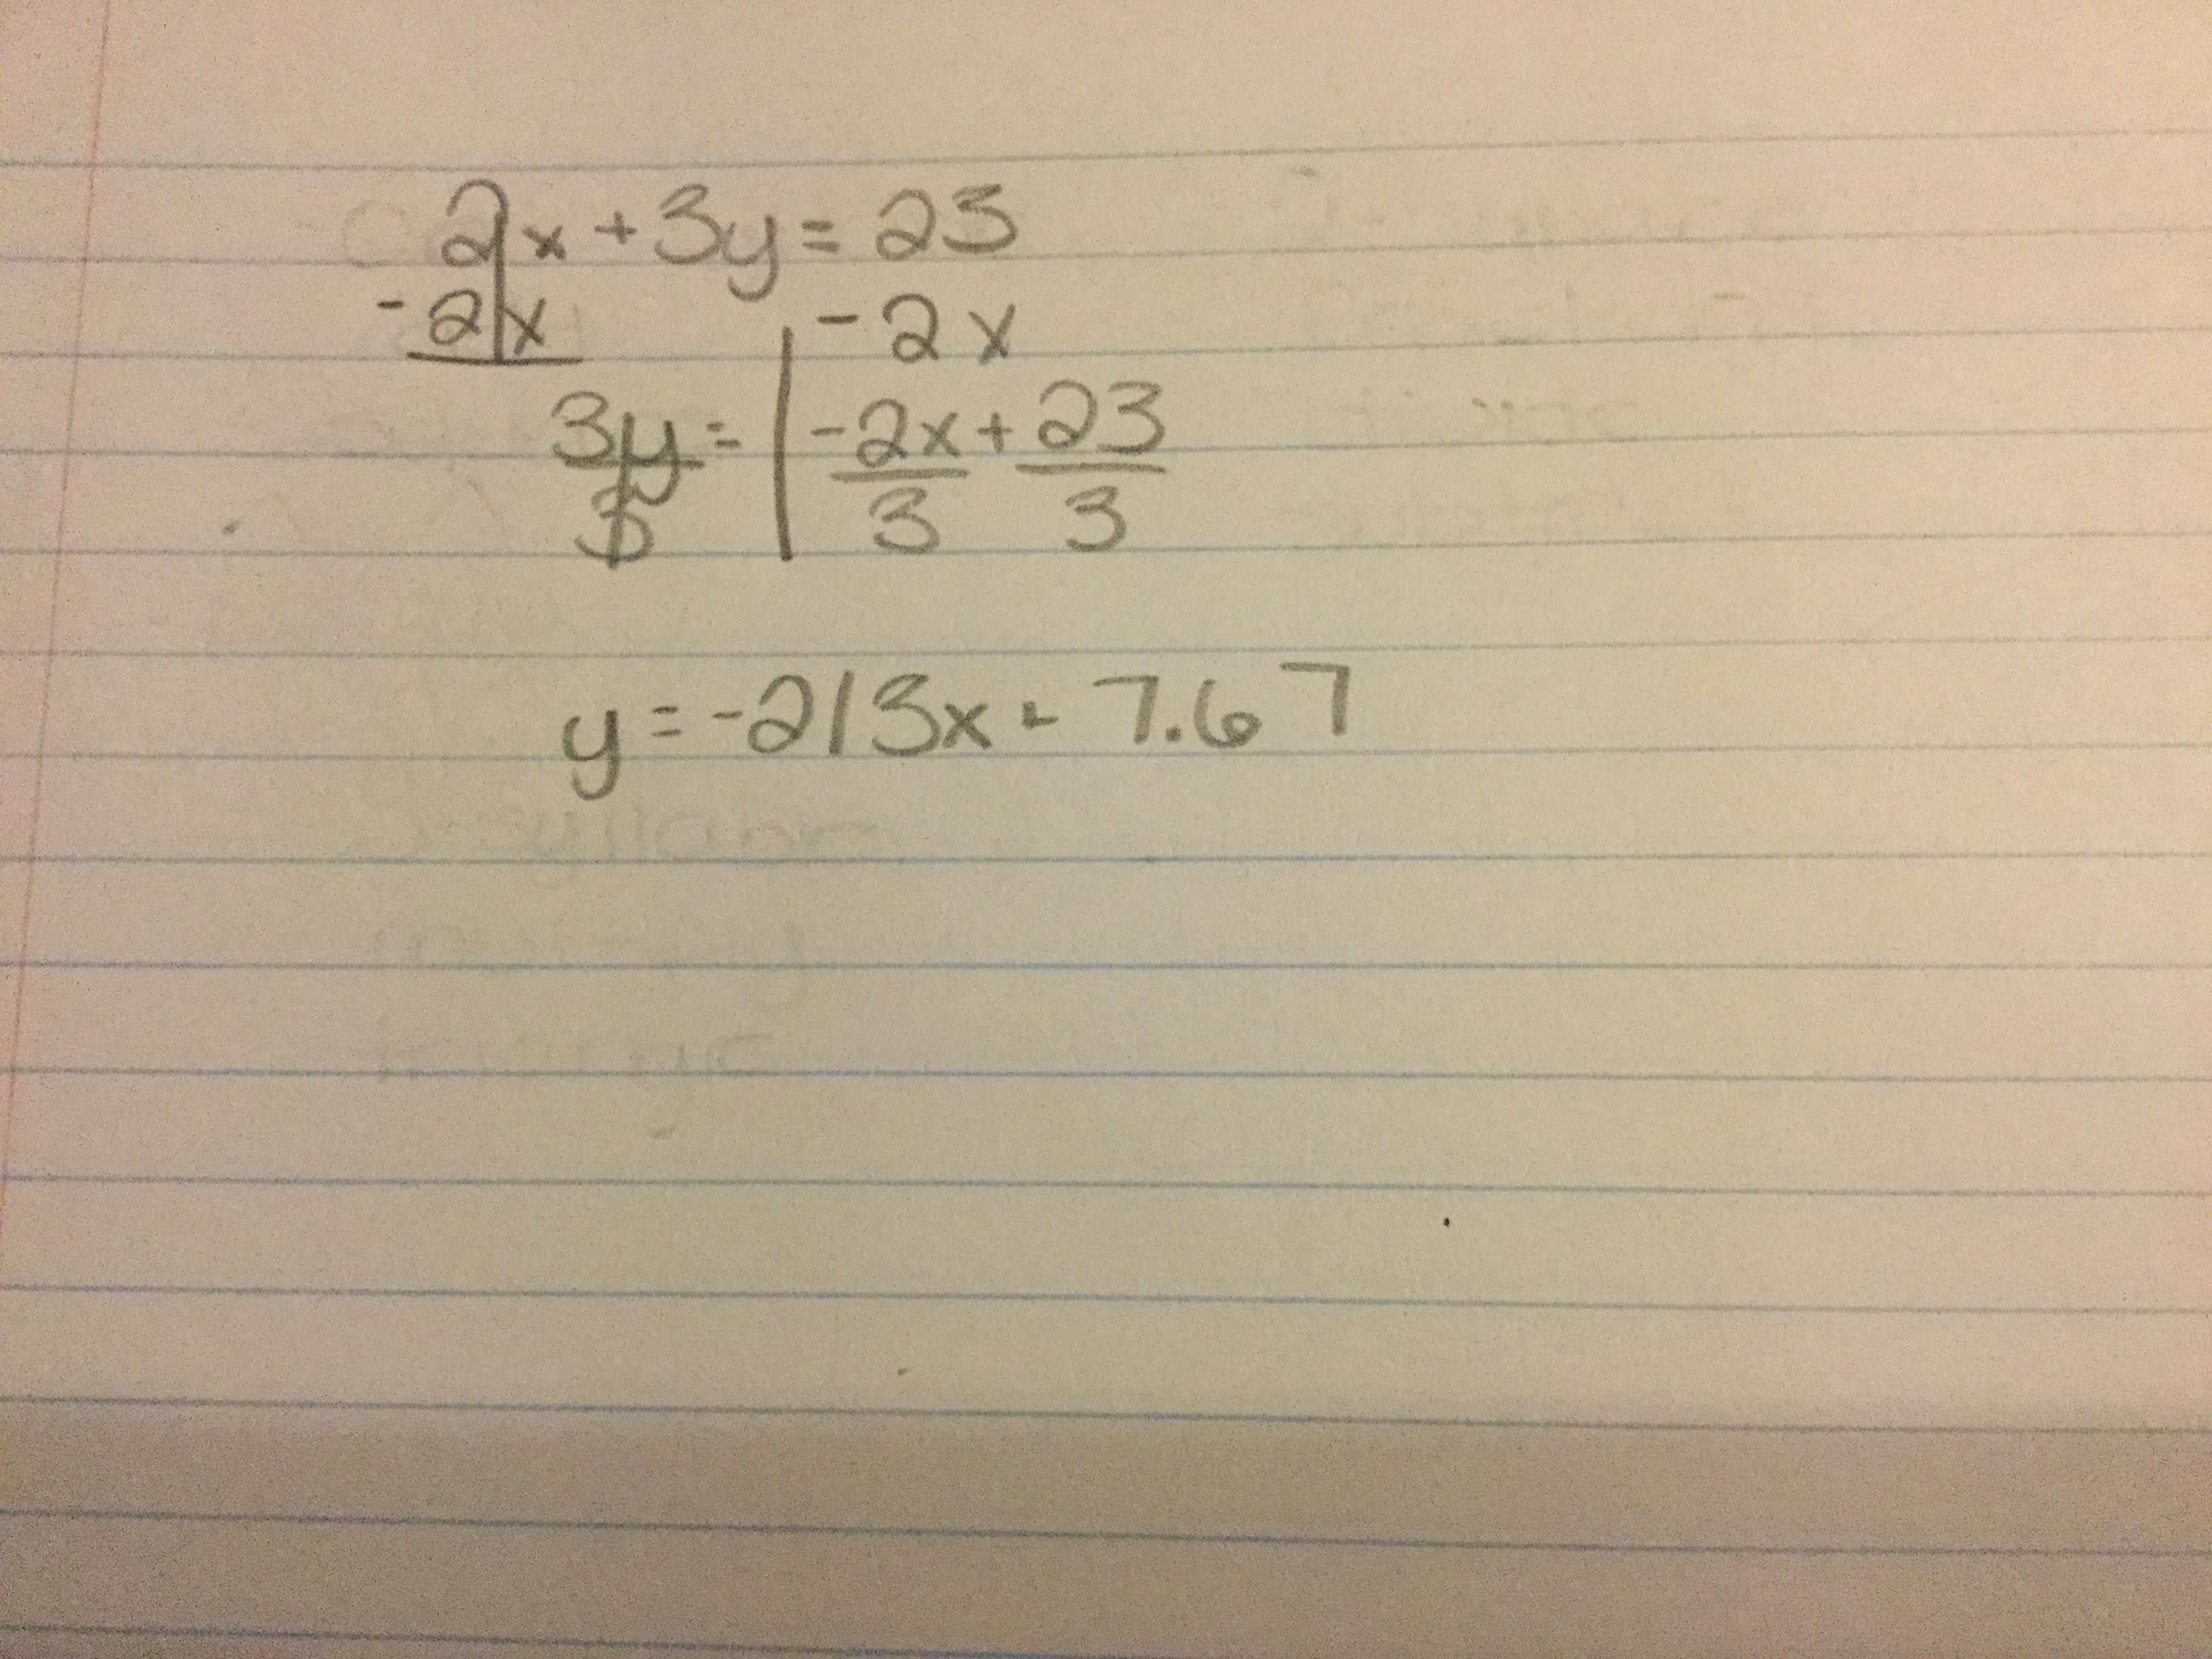 2x + 3y = 23
- 2x - 2x
3y = | -2x + 23
3 3 3
y = -2/3x + 7.67